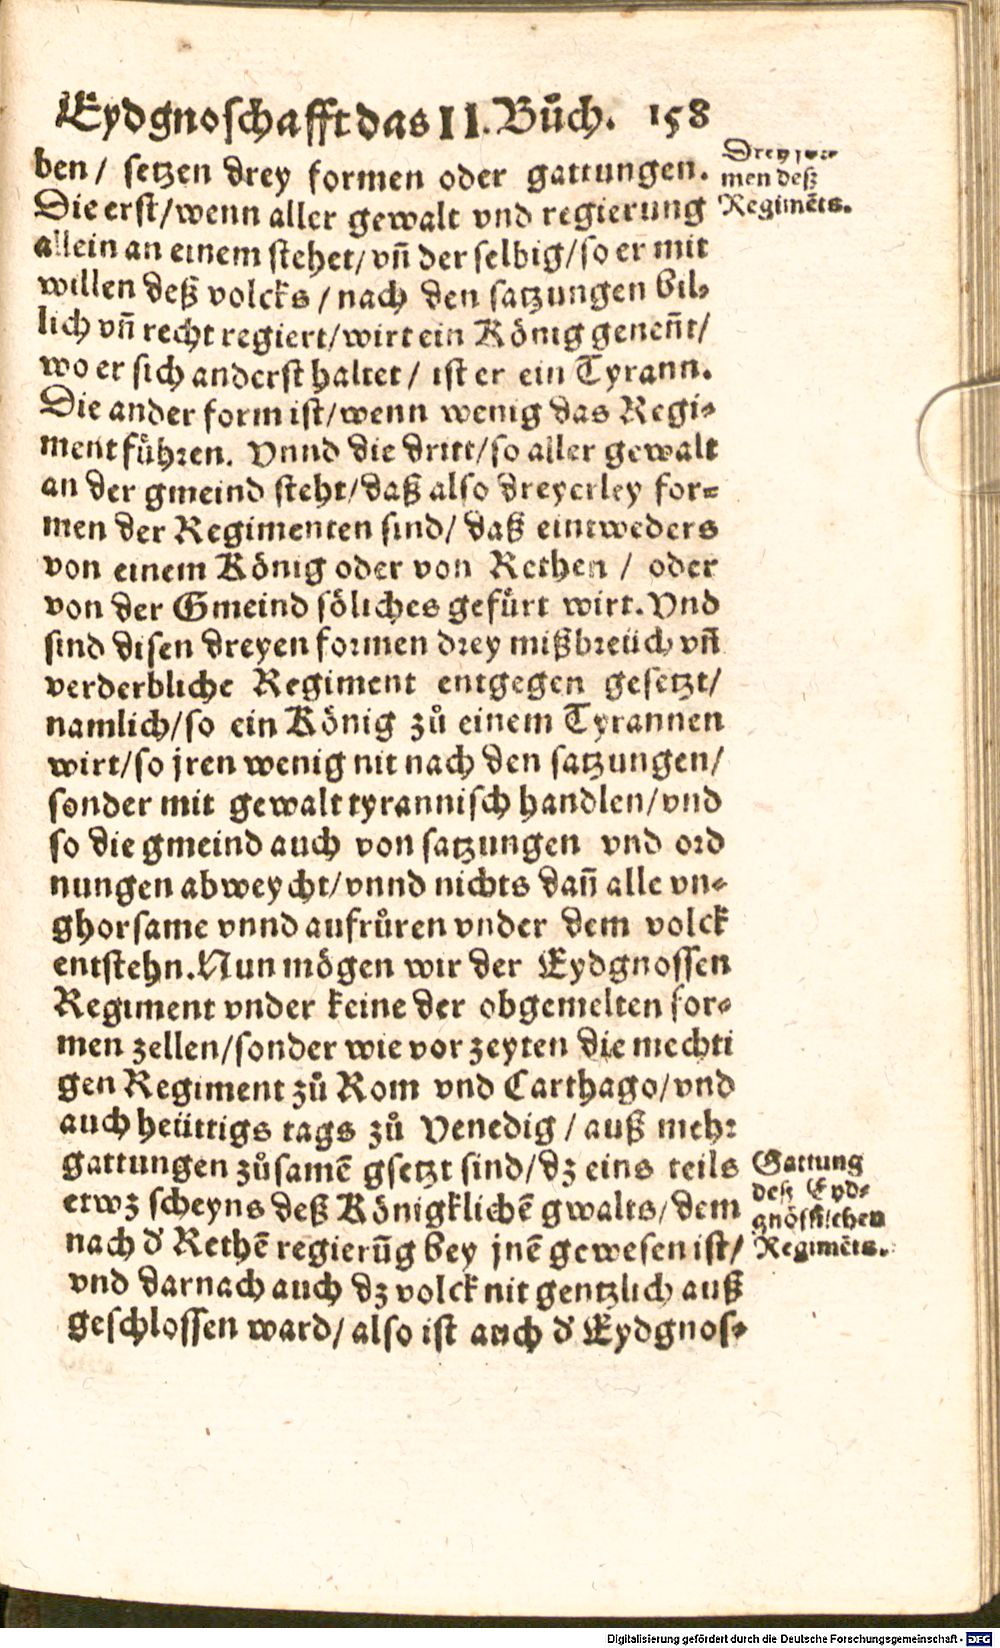 Eydgnoschafft das II. Bůch. 158
ben / setzen drey formen oder gattungen.
Die erst/wenn aller gewalt vnd regierung
allein an einem stehet/ vñ der selbig/so er mit
willen deß volcks / nach den satzungen bil-
lich vñ recht regiert/wirt ein König geneñt/
wo er sich anderst haltet / ist er ein Tyrann.
Die ander form ist/wenn wenig das Regi-
ment führen. Vnnd die dritt/so aller gewalt
an der gmeind steht/daß also dreyerley for-
men der Regimenten sind/ daß eintweders
von einem König oder von Rethen / oder
von der Gmeind söliches gefürt wirt. Vnd
sind disen dreyen formen drey mißbreüch vñ
verderbliche Regiment entgegen gesetzt/
namlich/so ein König zů einem Tyrannen
wirt/so jren wenig nit nach den satzungen/
sonder mit gewalt tyrannisch handlen/vnd
so die gmeind auch von satzungen vnd ord
nungen abweycht/vnnd nichts dañ alle vn-
ghorsame vnnd aufrůren vnder dem volck
entstehn. Nun mögen wir der Eydgnossen
Regiment vnder keine der obgemelten for-
men zellen/sonder wie vor zeyten die mechti
gen Regiment zů Rom vnd Carthago/vnd
auch heüttigs tags zů Venedig / auß mehr
gattungen zůsamẽ gsetzt sind/dz eins teils
etwz scheyns deß Königklichẽ gwalts/dem
nach d' Rethẽ regierũg bey jnẽ gewesen ist/
vnd darnach auch dz volck nit gentzlich auß
geschlossen ward/ also ist auch d' Eydgnos-
Drey for-
men deß
Regimẽts.
Gattung
deß Eyd-
gnössischen
Regimẽts.
Digitalisierung gefördert durch die Deutsche Forschungsgemeinschaft - DFG